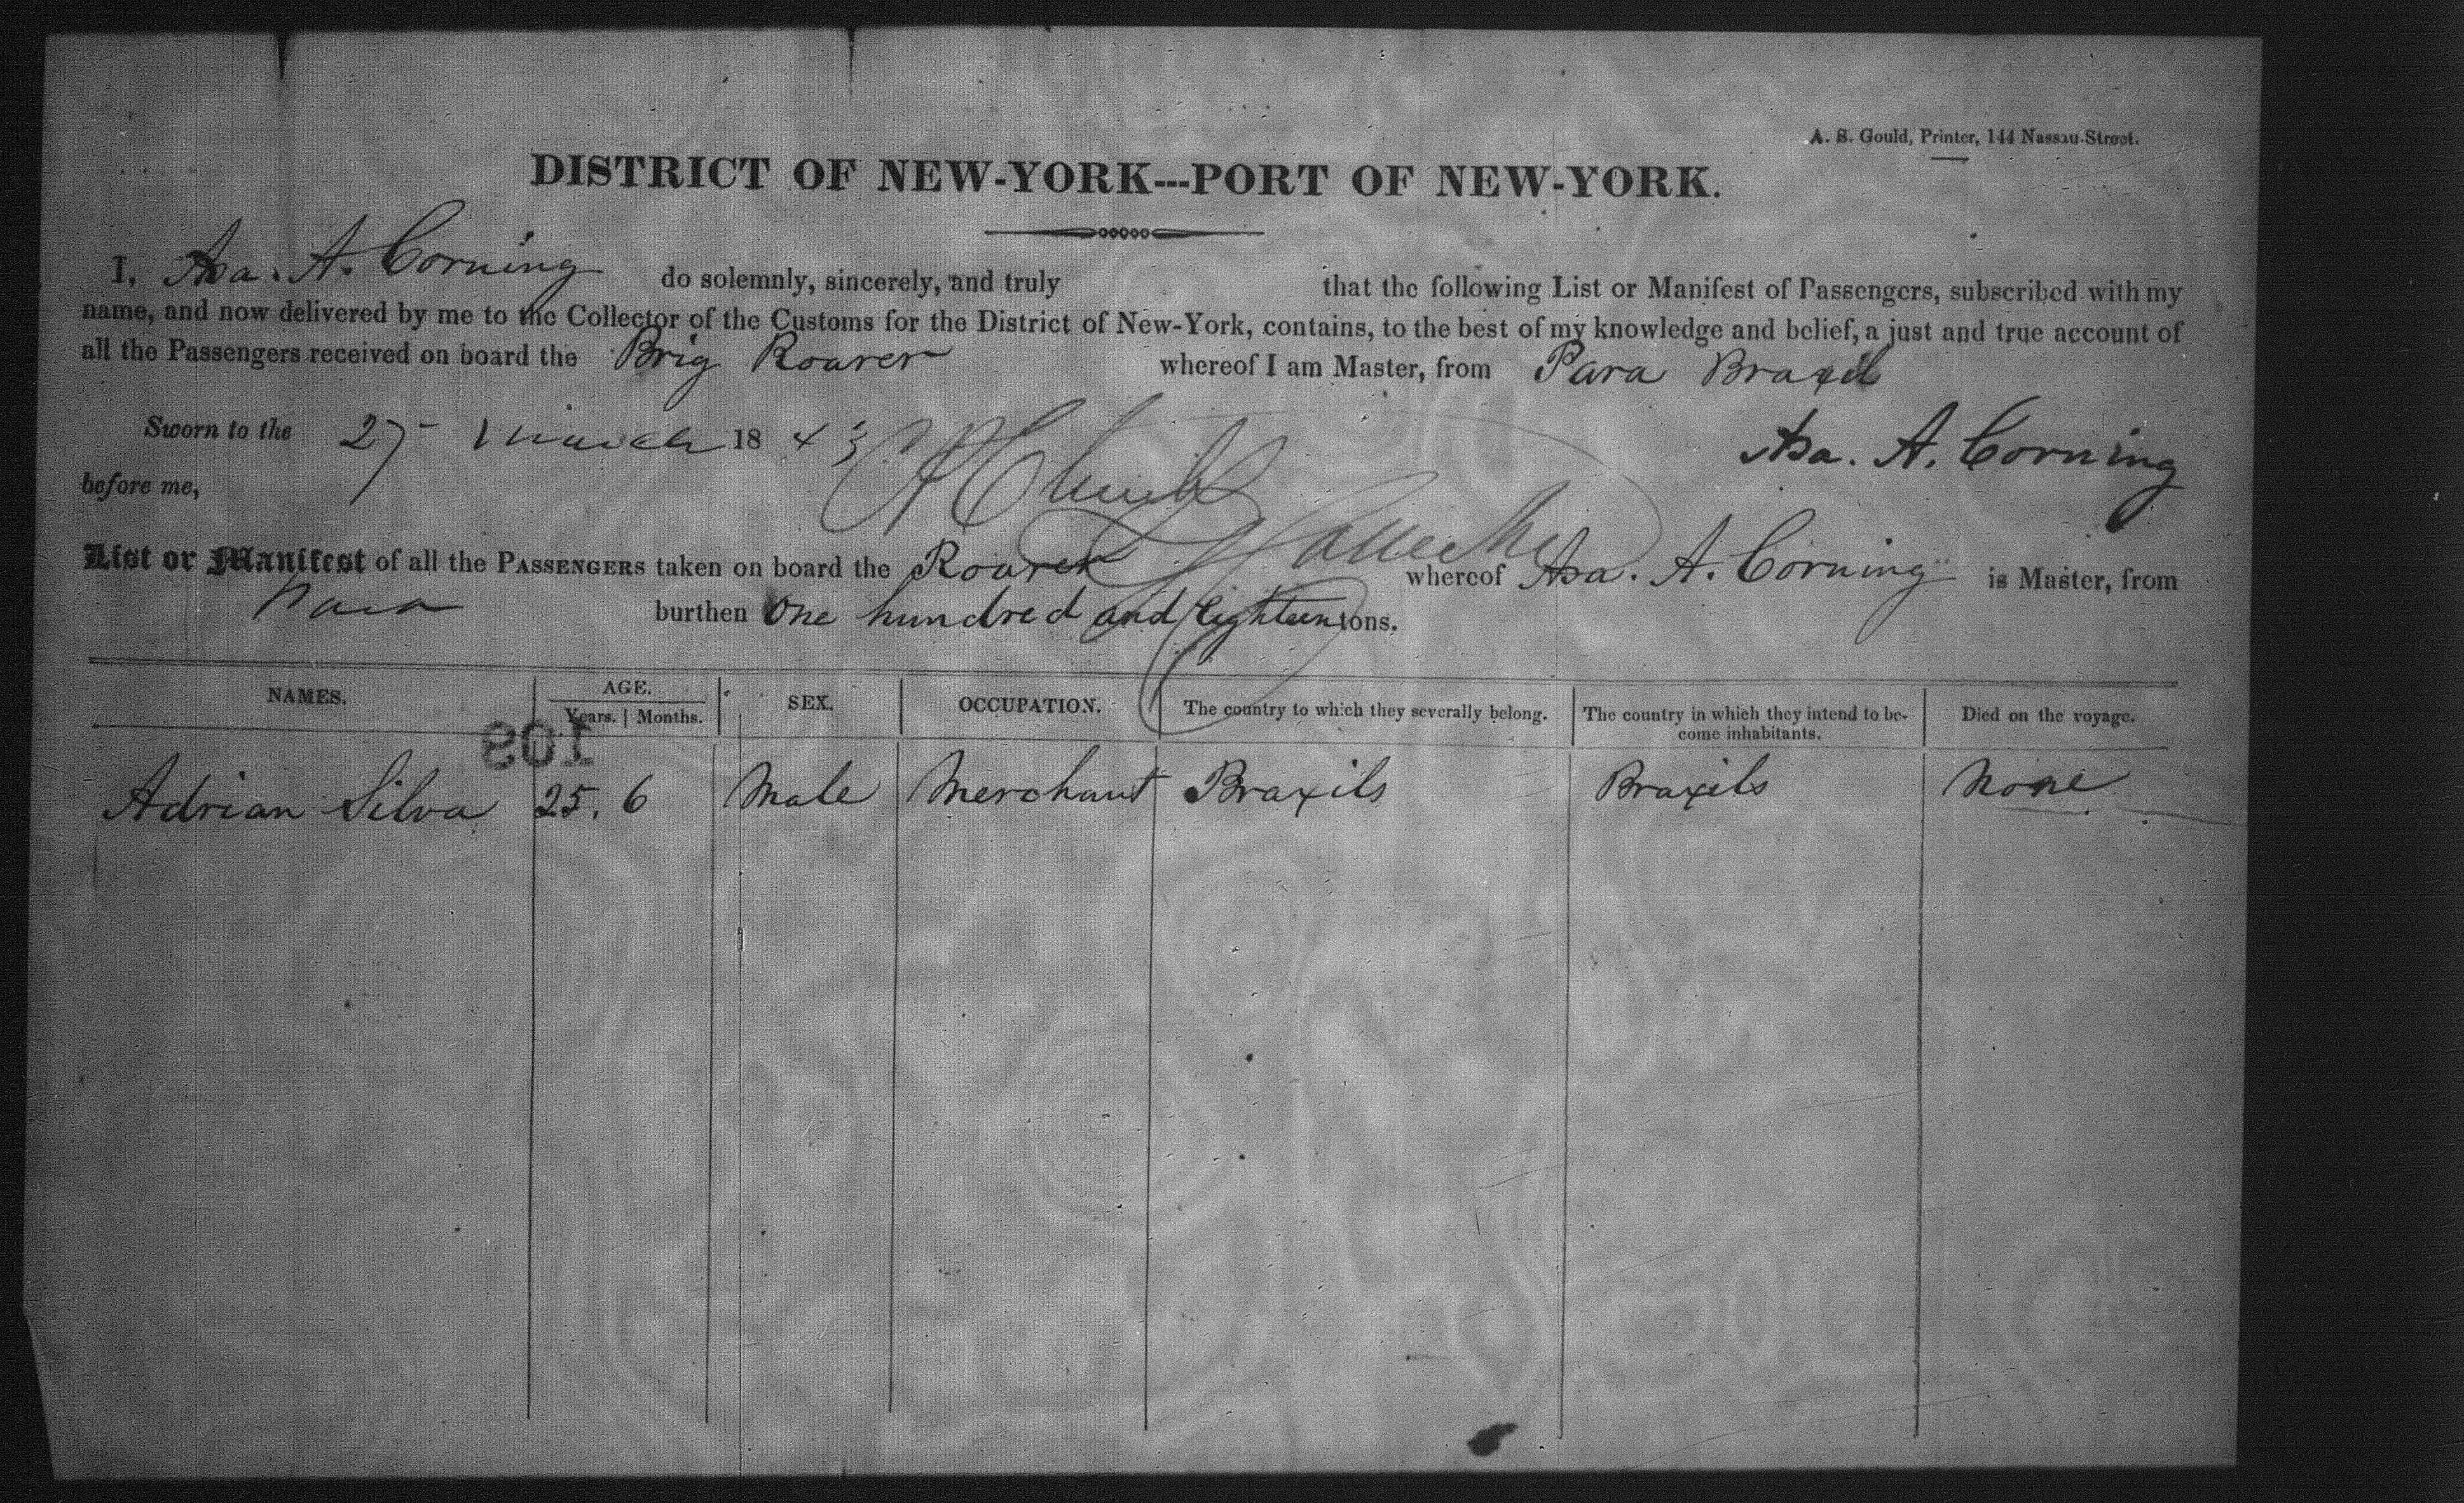 A. S. Gould, Printer, 144 Nassau-Street.
DISTRICT OF NEW-YORK---PORT OF NEW-YORK.
I, Asa. A. Corning do solemnly, sincerely, and truly that the following List or Manifest of Passengers, subscribed with my
name, and now delivered by me to the Collector of the Customs for the District of New-York, contains, to the best of my knowledge and belief, a just and true account of
all the Passengers received on board the Brig Roarer whereof I am Master, from Para Brazil
Sworn to the 27 March 1843 Asa. A. Corning
before me,
List or Manifest of all the PASSENGERS taken on board the Roarer whereof Asa. A. Corning is Master, from
Para burthen One hundred and Eighteen tons.
NAMES. AGE. SEX. OCCUPATION. The country to which they severally belong. The country in which they intend to be- Died on the voyage.
Years. | Months. come inhabitants.
109
Adrian Silva 25. 6 Male Merchant Brazils Brazils None